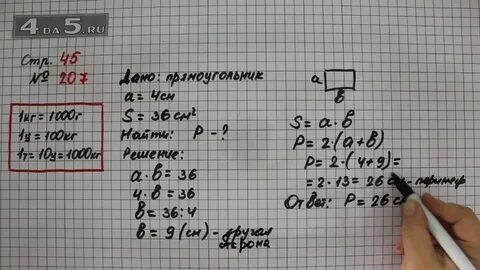 4 ДА 5.RU
Стр. 45
№ 207
1кг = 1000г
1ц = 100кг
1т = 10ц = 1000кг
Дано: прямоугольник
a = 4см
S = 36 см²
Найти: P - ?
Решение:
a · b = 36
4 · b = 36
b = 36 : 4
b = 9 (см) - другая
сторона
a
b
S = a · b
P = 2 · (a + b)
P = 2 · (4 + 9) =
= 2 · 13 = 26 см - периметр
Ответ: P = 26 см